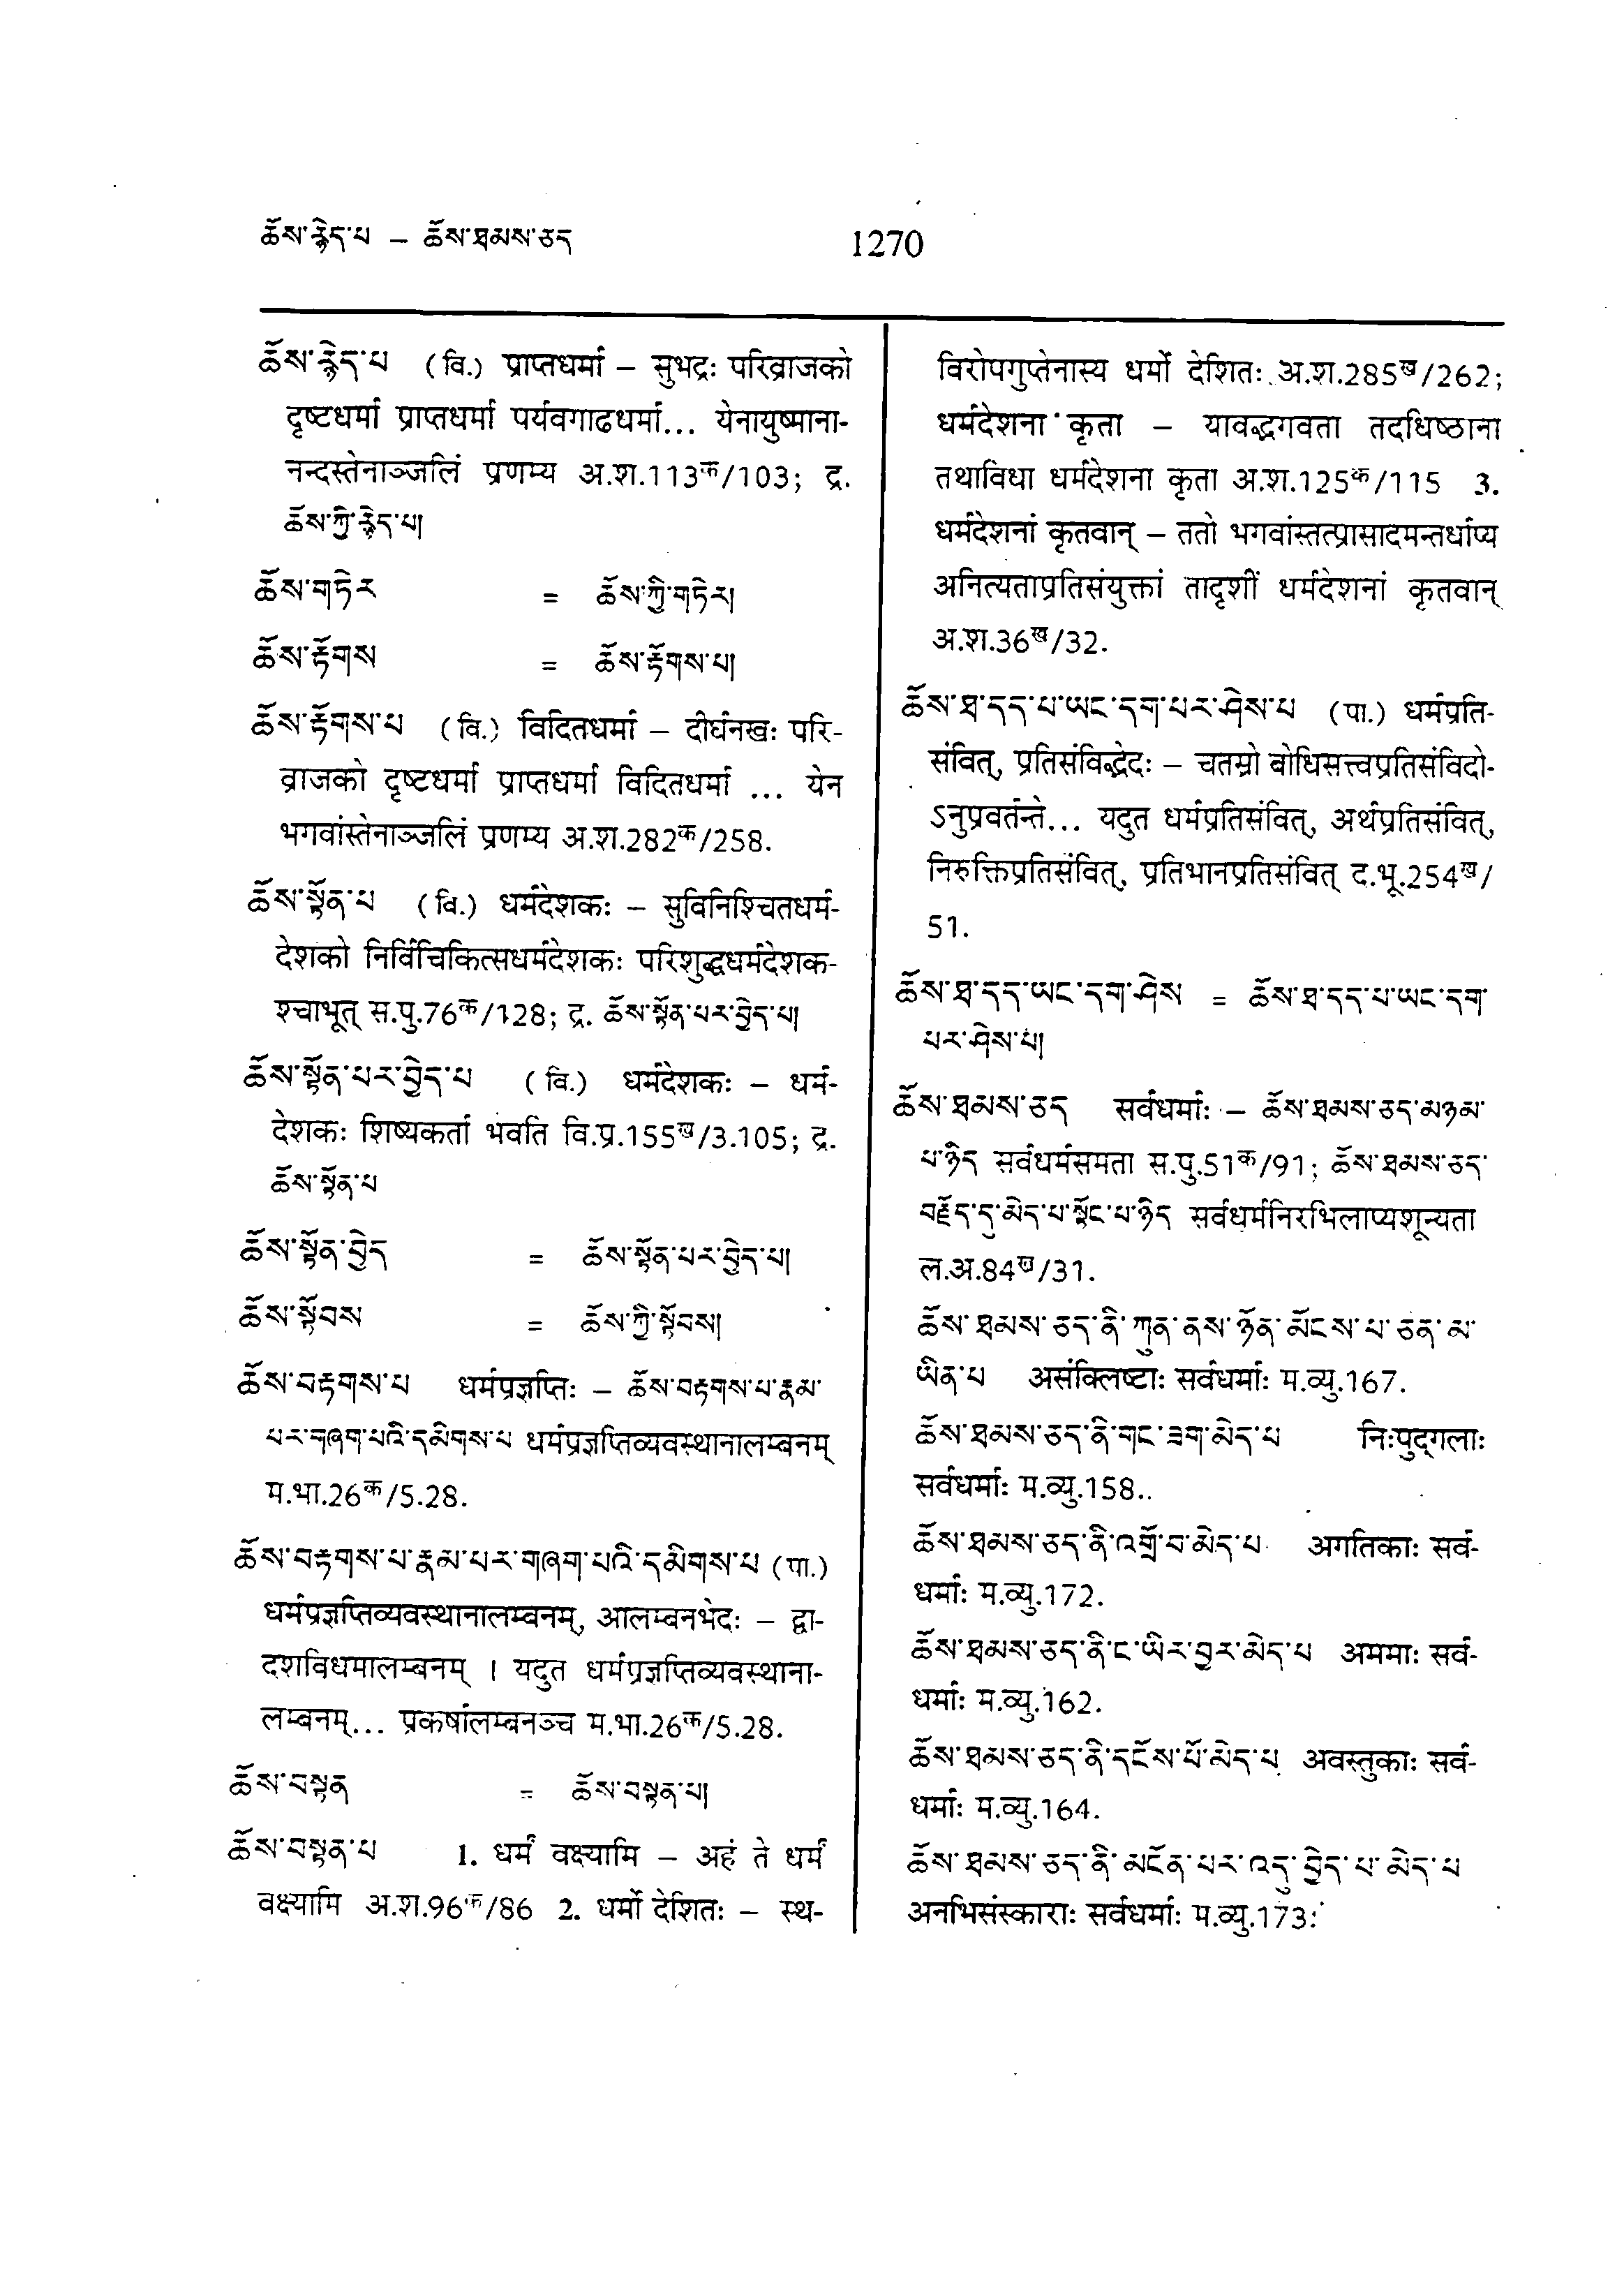 ཆོས་རྙེད་པ – ཆོས་ཐམས་ཅད
1270
ཆོས་རྙེད་པ (वि.) प्राप्तधर्मा – सुभद्रः परिव्राजको
दृष्टधर्मा प्राप्तधर्मा पर्यवगाढधर्मा... येनायुष्माना-
नन्दस्तेनाञ्जलिं प्रणम्य अ.श.113क/103; द्र.
ཆོས་ཀྱི་རྙེད་པ།
ཆོས་གཏེར = ཆོས་ཀྱི་གཏེར།
ཆོས་རྟོགས = ཆོས་རྟོགས་པ།
ཆོས་རྟོགས་པ (वि.) विदितधर्मा – दीर्घनखः परि-
व्राजको दृष्टधर्मा प्राप्तधर्मा विदितधर्मा ... येन
भगवांस्तेनाञ्जलिं प्रणम्य अ.श.282क/258.
ཆོས་སྟོན་པ (वि.) धर्मदेशकः – सुविनिश्चितधर्म-
देशको निर्विचिकित्सधर्मदेशकः परिशुद्धधर्मदेशक-
श्चाभूत् स.पु.76क/128; द्र. ཆོས་སྟོན་པར་བྱེད་པ།
ཆོས་སྟོན་པར་བྱེད་པ (वि.) धर्मदेशकः – धर्म-
देशकः शिष्यकर्ता भवति वि.प्र.155ख/3.105; द्र.
ཆོས་སྟོན་པ
ཆོས་སྟོན་བྱེད = ཆོས་སྟོན་པར་བྱེད་པ།
ཆོས་སྟོབས = ཆོས་ཀྱི་སྟོབས།
ཆོས་བརྟགས་པ धर्मप्रज्ञप्तिः – ཆོས་བརྟགས་པ་རྣམ་
པར་གཞག་པའི་དམིགས་པ धर्मप्रज्ञप्तिव्यवस्थानालम्बनम्
म.भा.26क/5.28.
ཆོས་བརྟགས་པ་རྣམ་པར་གཞག་པའི་དམིགས་པ (पा.)
धर्मप्रज्ञप्तिव्यवस्थानालम्बनम्, आलम्बनभेदः – द्वा-
दशविधमालम्बनम् । यदुत धर्मप्रज्ञप्तिव्यवस्थाना-
लम्बनम्... प्रकर्षालम्बनञ्च म.भा.26क/5.28.
ཆོས་བསྟན = ཆོས་བསྟན་པ།
ཆོས་བསྟན་པ 1. धर्मं वक्ष्यामि – अहं ते धर्मं
वक्ष्यामि अ.श.96क/86 2. धर्मो देशितः – स्थ-
विरोपगुप्तेनास्य धर्मो देशितः अ.श.285ख/262;
धर्मदेशना कृता – यावद्भगवता तदधिष्ठाना
तथाविधा धर्मदेशना कृता अ.श.125क/115 3.
धर्मदेशनां कृतवान् – ततो भगवांस्तत्प्रासादमन्तर्धाप्य
अनित्यताप्रतिसंयुक्तां तादृशीं धर्मदेशनां कृतवान्
अ.श.36ख/32.
ཆོས་ཐ་དད་པ་ཡང་དག་པར་ཤེས་པ (पा.) धर्मप्रति-
संवित्, प्रतिसंविद्भेदः – चतस्रो बोधिसत्त्वप्रतिसंविदो-
ऽनुप्रवर्तन्ते... यदुत धर्मप्रतिसंवित्, अर्थप्रतिसंवित्,
निरुक्तिप्रतिसंवित्, प्रतिभानप्रतिसंवित् द.भू.254ख/
51.
ཆོས་ཐ་དད་ཡང་དག་ཤེས = ཆོས་ཐ་དད་པ་ཡང་དག་
པར་ཤེས་པ།
ཆོས་ཐམས་ཅད सर्वधर्माः – ཆོས་ཐམས་ཅད་མཉམ་
པ་ཉིད सर्वधर्मसमता स.पु.51क/91; ཆོས་ཐམས་ཅད་
བརྗོད་དུ་མེད་པ་སྟོང་པ་ཉིད सर्वधर्मनिरभिलाप्यशून्यता
ल.अ.84ख/31.
ཆོས་ཐམས་ཅད་ནི་ཀུན་ནས་ཉོན་མོངས་པ་ཅན་མ་
ཡིན་པ असंक्लिष्टाः सर्वधर्माः म.व्यु.167.
ཆོས་ཐམས་ཅད་ནི་གང་ཟག་མེད་པ निःपुद्गलाः
सर्वधर्माः म.व्यु.158.
ཆོས་ཐམས་ཅད་ནི་འགྲོ་བ་མེད་པ अगतिकाः सर्व-
धर्माः म.व्यु.172.
ཆོས་ཐམས་ཅད་ནི་ང་ཡིར་བྱར་མེད་པ अममाः सर्व-
धर्माः म.व्यु.162.
ཆོས་ཐམས་ཅད་ནི་དངོས་པོ་མེད་པ अवस्तुकाः सर्व-
धर्माः म.व्यु.164.
ཆོས་ཐམས་ཅད་ནི་མངོན་པར་འདུ་བྱེད་པ་མེད་པ
अनभिसंस्काराः सर्वधर्माः म.व्यु.173.